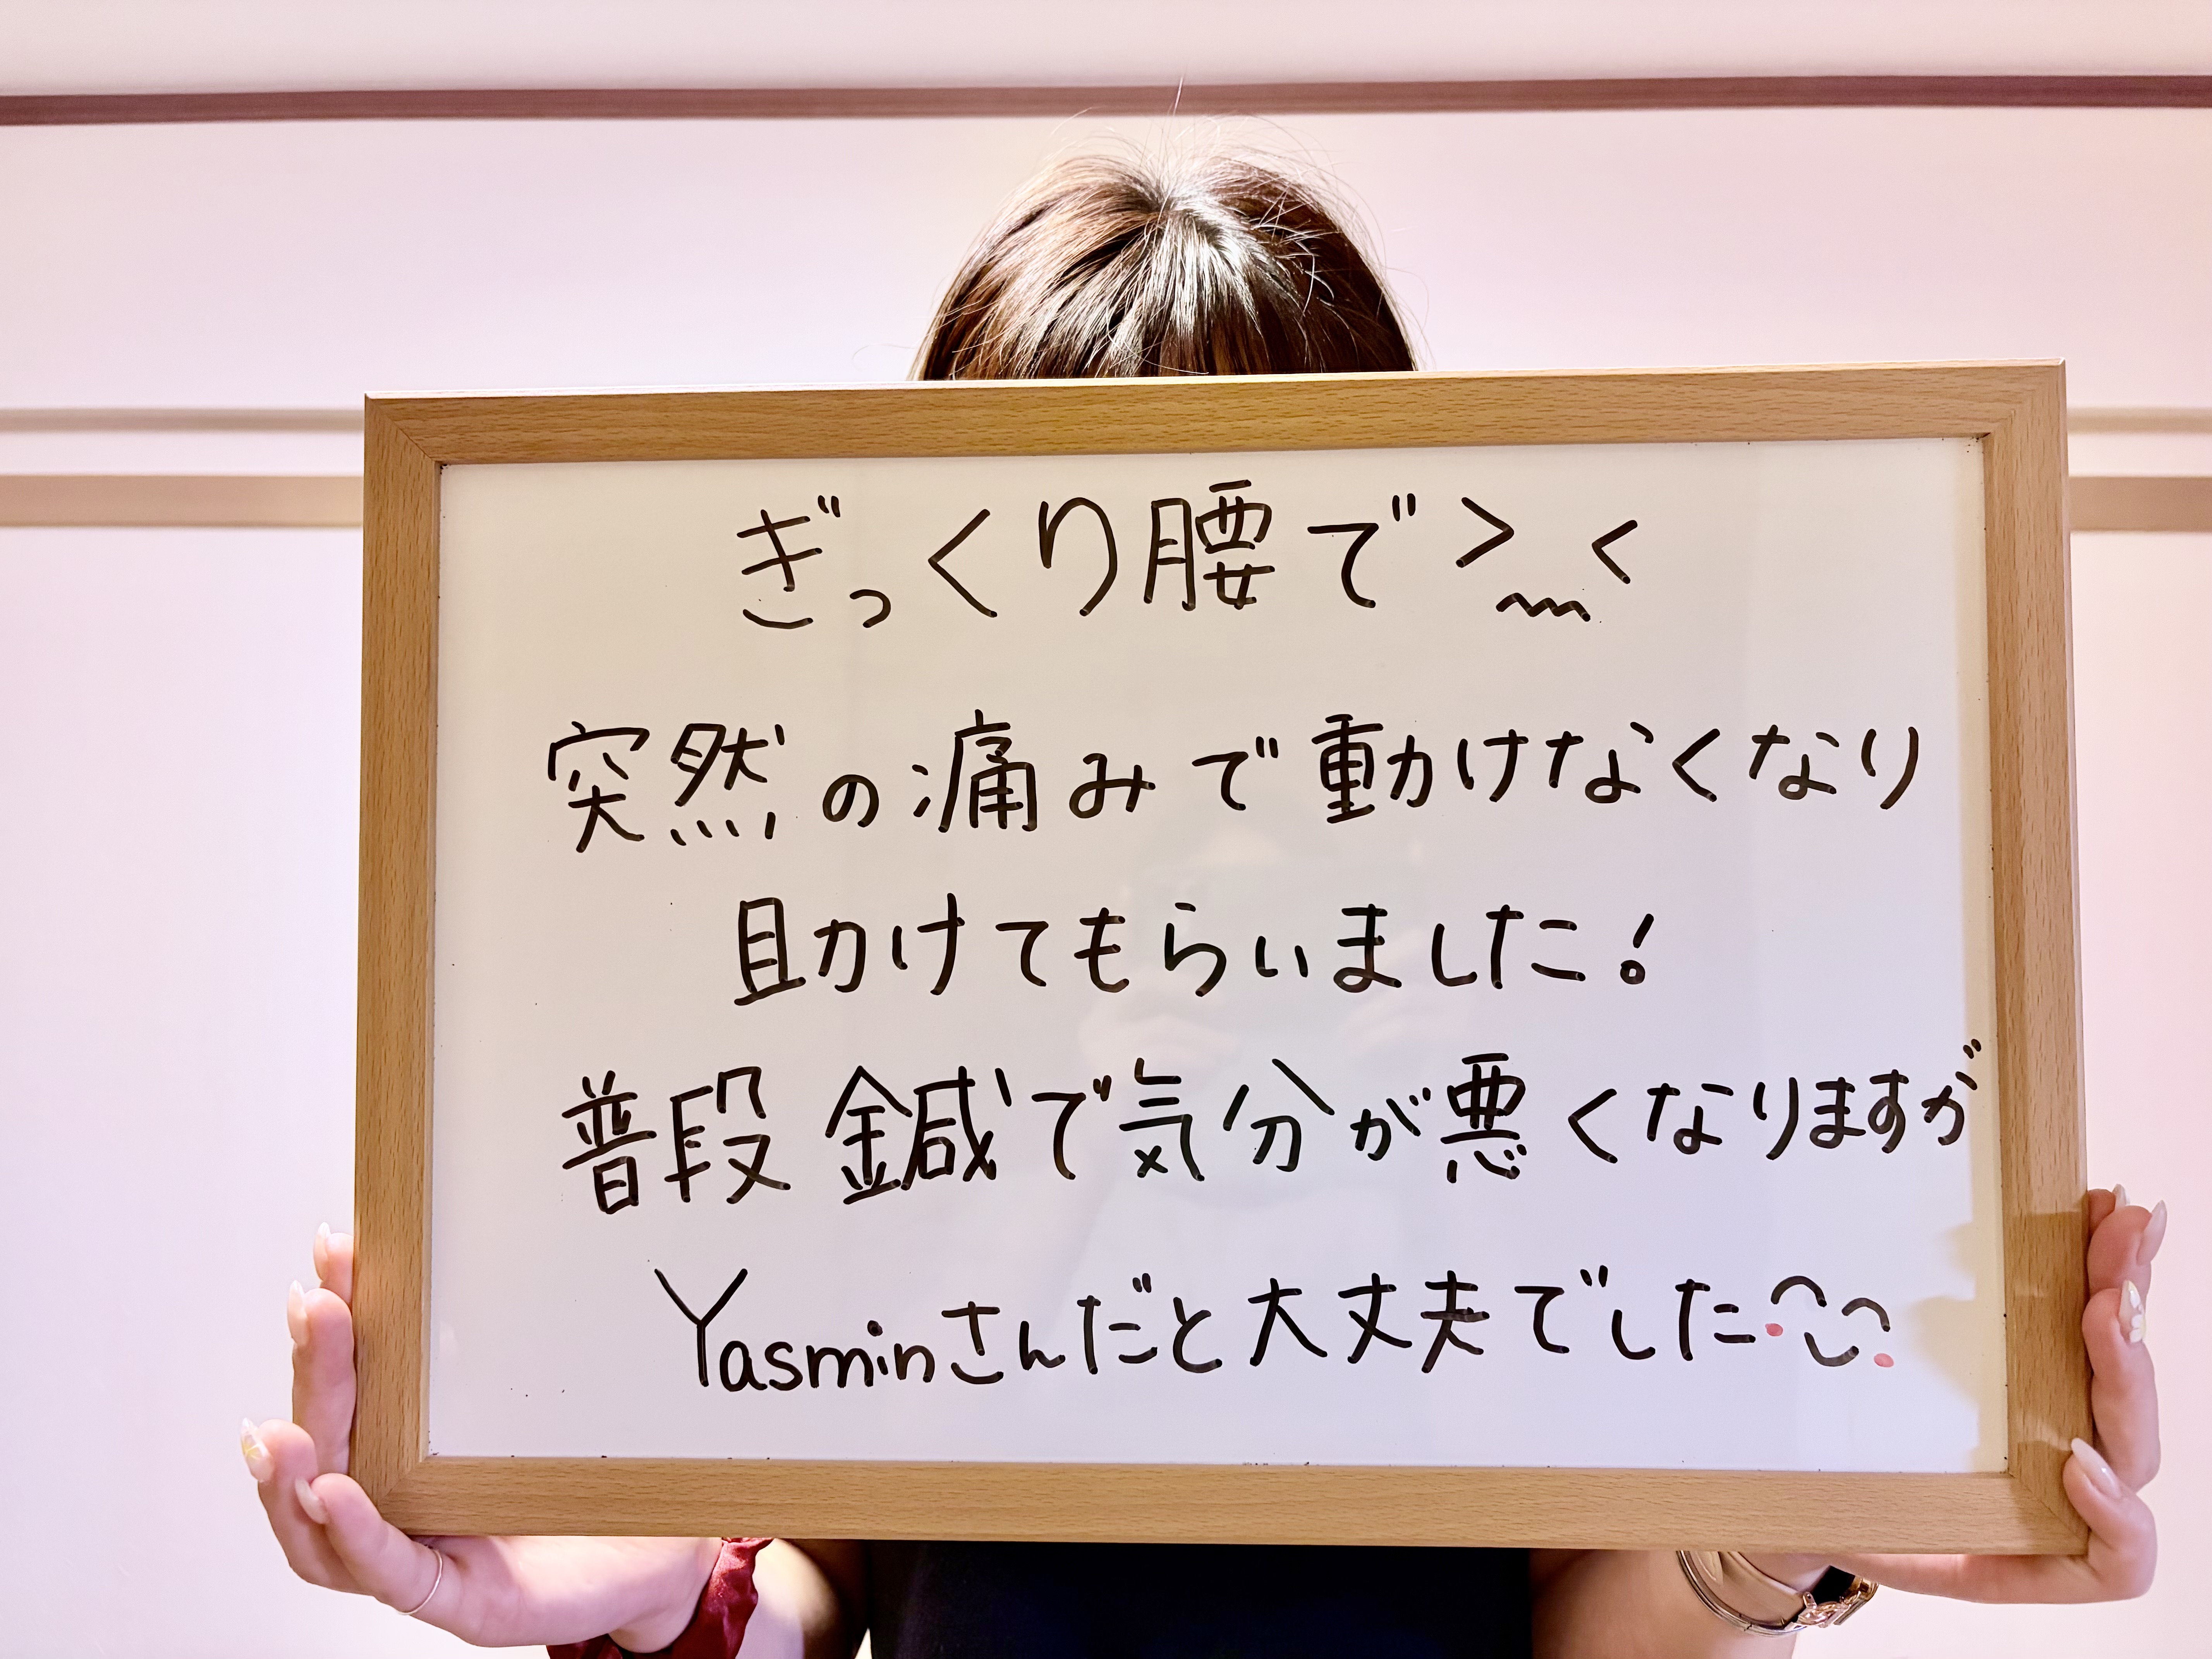 ぎっくり腰で >﹏<
突然の痛みで動けなくなり
助けてもらいました!
普段鍼で気分が悪くなりますが
Yasminさんだと大丈夫でした